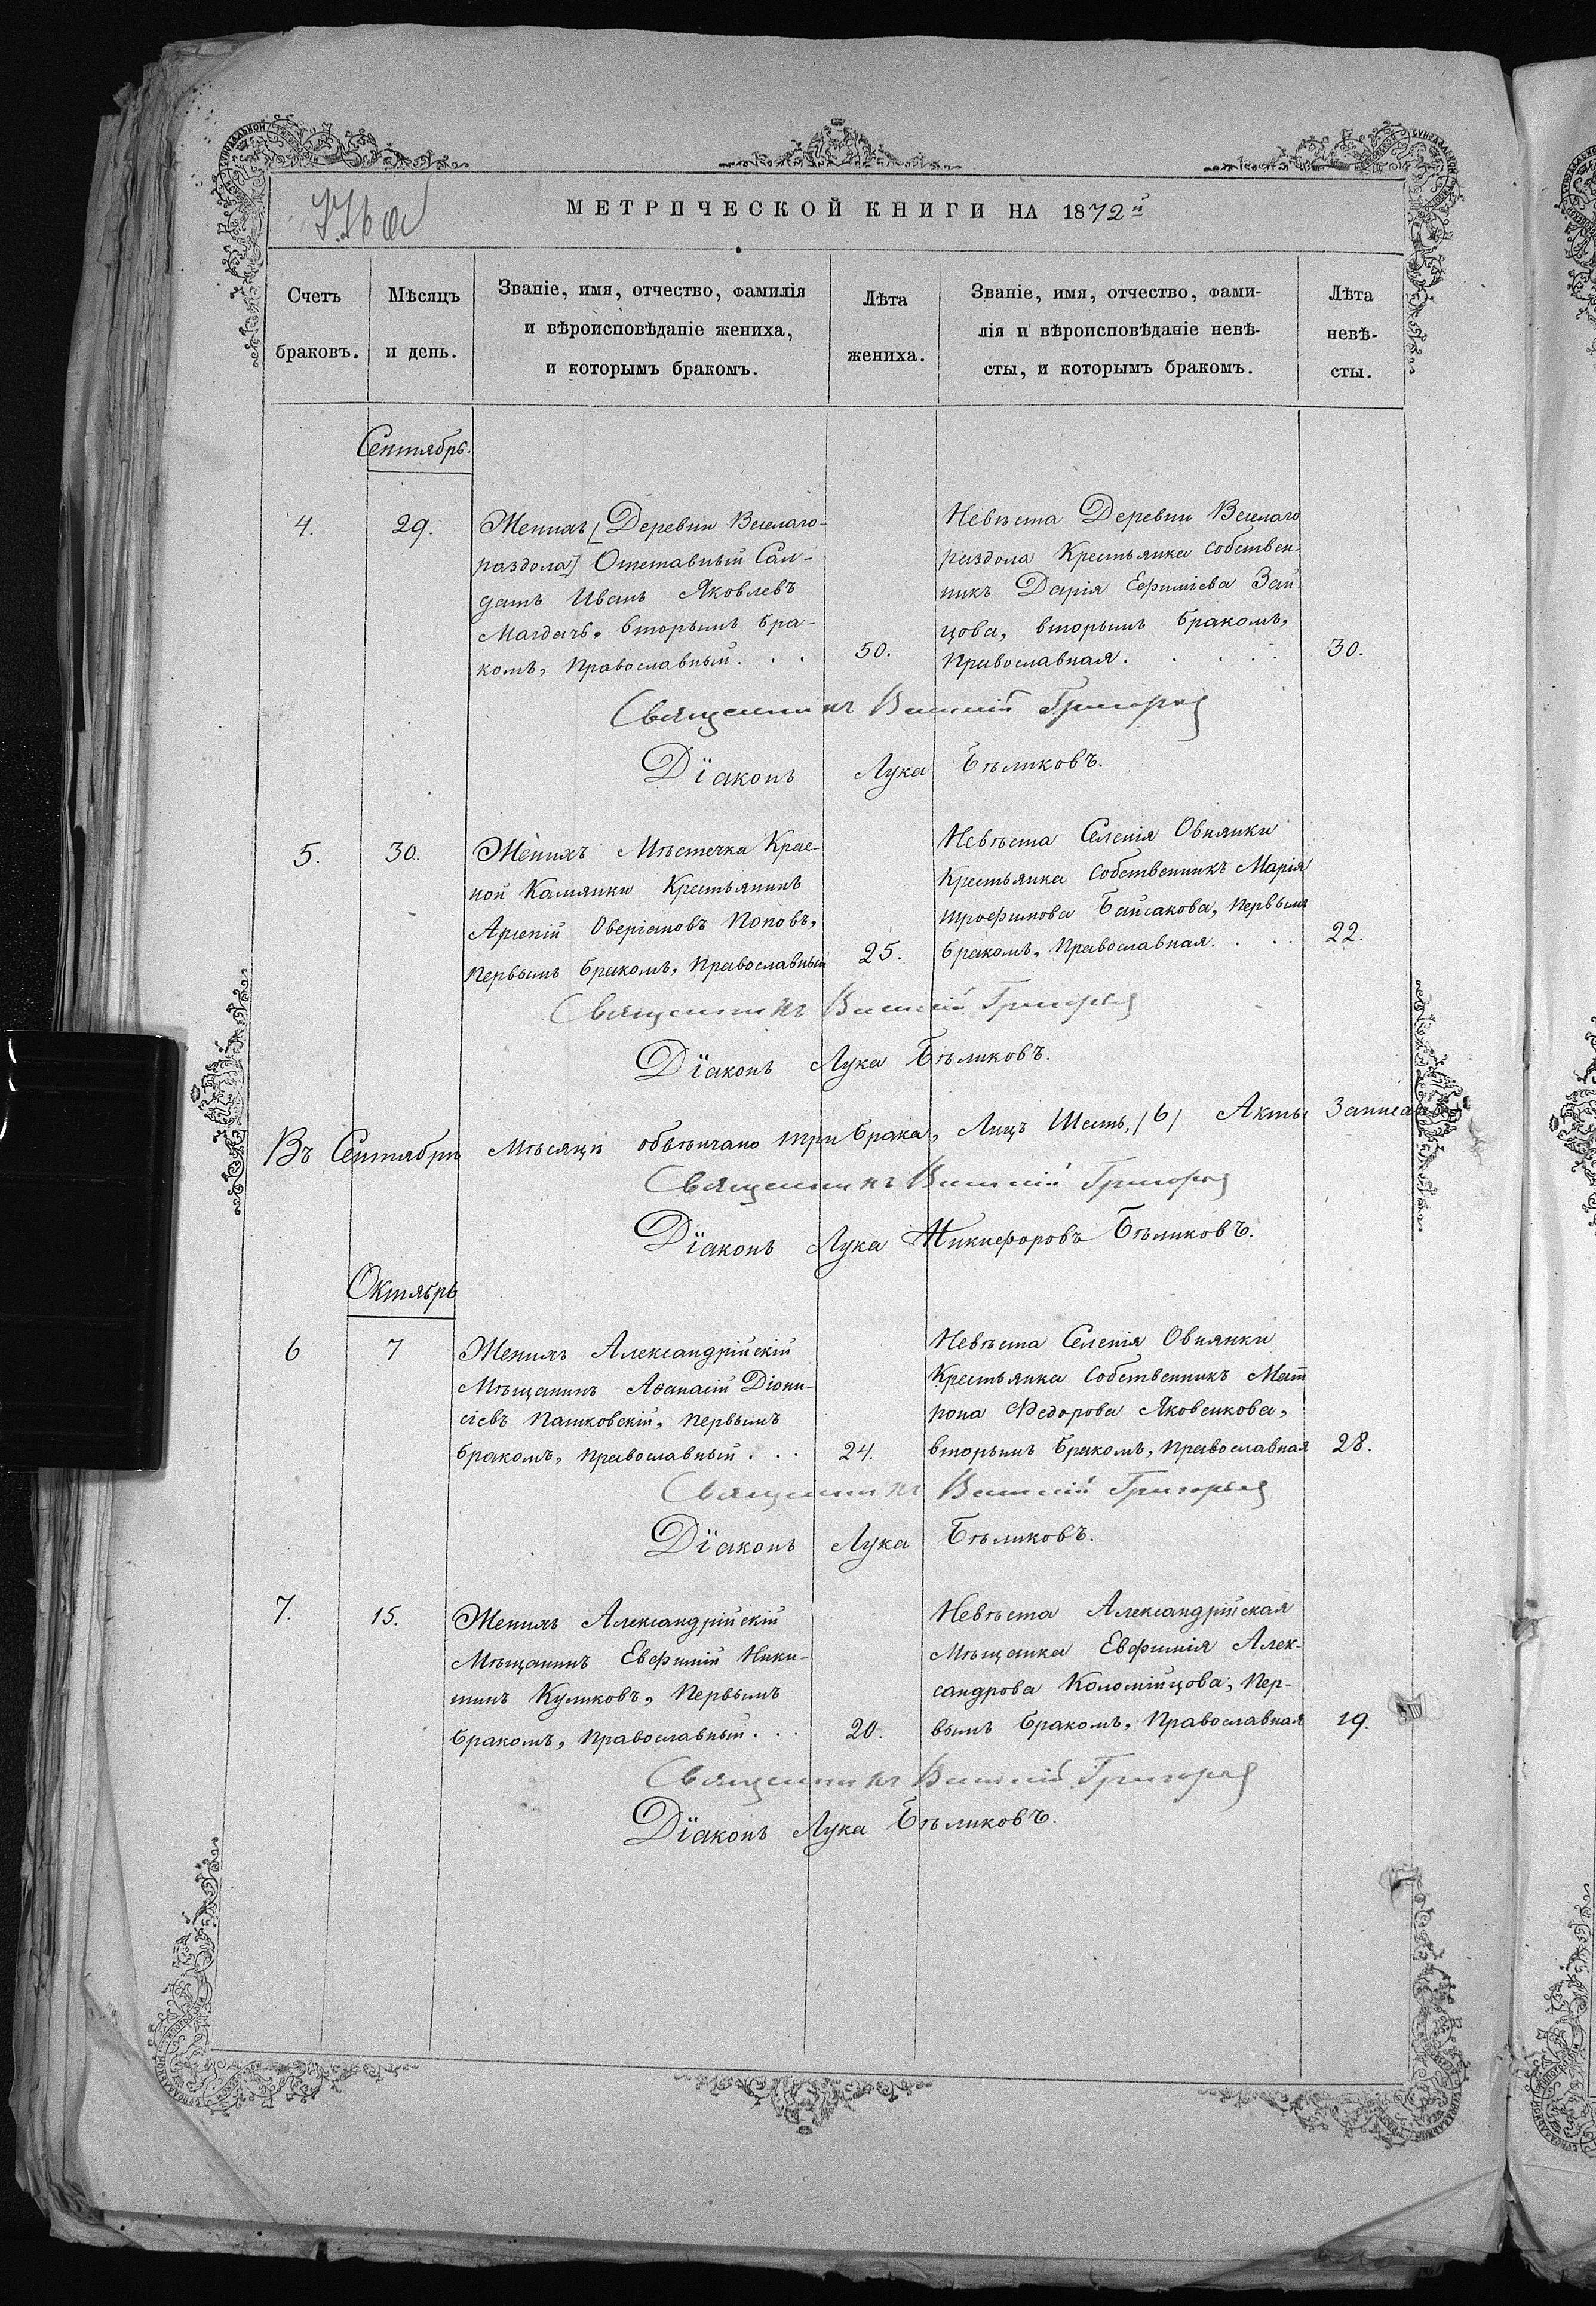 МЕТРИЧЕСКОЙ КНИГИ НА 1872й
Счетъ браковъ.
Мѣсяцъ и день.
Званіе, имя, отчество, фамилія
и вѣроисповѣданіе жениха,
и которымъ бракомъ.
Лѣта
жениха.
Званіе, имя, отчество, фами-
лія и вѣроисповѣданіе невѣ-
сты, и которымъ бракомъ.
Лѣта
невѣ-
сты.
Сентябрь.
4.
29.
Женихъ [Деревни Веселаго-
раздола] Отставный Сал-
датъ Иванъ Яковлевъ
Магдачъ, вторымъ бра-
комъ, Православный. . .
50.
Невѣста Деревни Веселаго
раздола Крестьянка собствен-
никъ Дарія Ефиміева Зай
цова, вторымъ бракомъ,
Православная. . . .
30.
Священникъ Василій
Діаконъ Лука Бѣликовъ.
5.
30.
Женихъ Мѣстечка Крас-
ной Камянки Крестьянинъ
Арсеній Оверіановъ Поповъ,
Первымъ бракомъ, Православный
25.
Невѣста Селенія Овнянки
Крестьянка собственникъ Марія
трофимова Байсакова, Первымъ
бракомъ, Православная. . . .
22.
Священникъ Василій
Діаконъ Лука Бѣликовъ.
Въ Сентябрѣ Мѣсяцѣ обвѣнчано три брака, Лицъ Шесть, /6/ Акты
Священникъ Василій
Діаконъ Лука Никифоровъ Бѣликовъ.
Октябрь
6
7
Женихъ Александрійскій
Мѣщанинъ Аѳанасій Діони-
сіевъ Пашковскій, Первымъ
бракомъ, Православный. . .
24.
Невѣста Селенія Овнянки
Крестьянка собственникъ Мат
рона Федорова Яковенкова,
вторымъ бракомъ, Православная
28.
Священникъ Василій
Діаконъ Лука Бѣликовъ.
7.
15.
Женихъ Александрійскій
Мѣщанинъ Евфимій Ники-
тинъ Куликовъ, Первымъ
бракомъ, Православный. . .
20.
Невѣста Александрійская
Мѣщанка Евфимія Алек-
сандрова Коломійцова, Пер-
вымъ бракомъ, Православная
19.
Священникъ Василій
Діаконъ Лука Бѣликовъ.